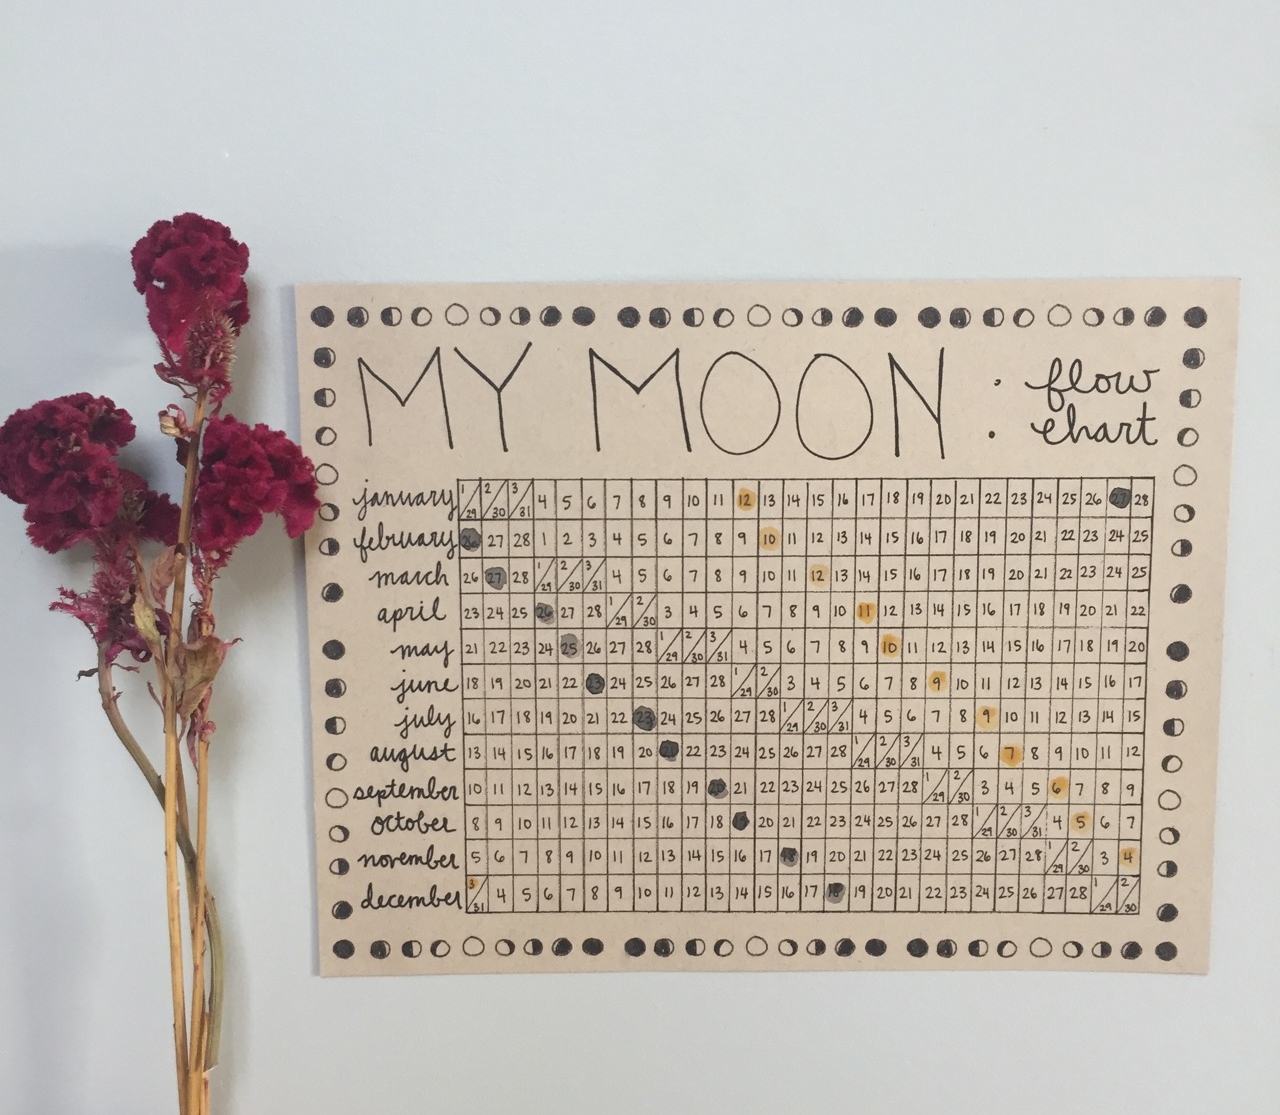 MY MOON : flow
chart
january 1/29 2/30 3/31 4 5 6 7 8 9 10 11 12 13 14 15 16 17 18 19 20 21 22 23 24 25 26 27 28
february 26 27 28 1 2 3 4 5 6 7 8 9 10 11 12 13 14 15 16 17 18 19 20 21 22 23 24 25
march 26 27 28 1/29 2/30 3/31 4 5 6 7 8 9 10 11 12 13 14 15 16 17 18 19 20 21 22 23 24 25
april 23 24 25 26 27 28 1/29 2/30 3 4 5 6 7 8 9 10 11 12 13 14 15 16 17 18 19 20 21 22
may 21 22 23 24 25 26 27 28 1/29 2/30 3/31 4 5 6 7 8 9 10 11 12 13 14 15 16 17 18 19 20
june 18 19 20 21 22 23 24 25 26 27 28 1/29 2/30 3 4 5 6 7 8 9 10 11 12 13 14 15 16 17
july 16 17 18 19 20 21 22 23 24 25 26 27 28 1/29 2/30 3/31 4 5 6 7 8 9 10 11 12 13 14 15
august 13 14 15 16 17 18 19 20 21 22 23 24 25 26 27 28 1/29 2/30 3/31 4 5 6 7 8 9 10 11 12
september 10 11 12 13 14 15 16 17 18 19 20 21 22 23 24 25 26 27 28 1/29 2/30 3 4 5 6 7 8 9
october 8 9 10 11 12 13 14 15 16 17 18 19 20 21 22 23 24 25 26 27 28 1/29 2/30 3/31 4 5 6 7
november 5 6 7 8 9 10 11 12 13 14 15 16 17 18 19 20 21 22 23 24 25 26 27 28 1/29 2/30 3 4
december 3/31 4 5 6 7 8 9 10 11 12 13 14 15 16 17 18 19 20 21 22 23 24 25 26 27 28 1/29 2/30